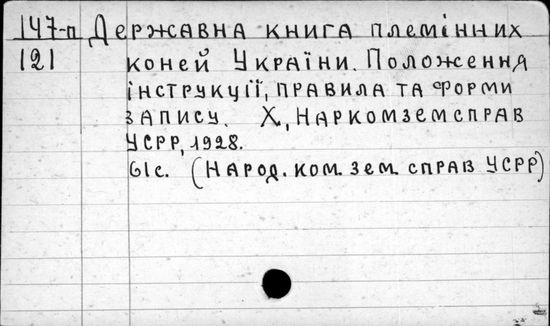 147-п Державна книга племінних
121 коней України. Положення
інструкції, правила та форми
запису. Х., Наркомземсправ
УСРР, 1928.
61 с. (Народ. ком. зем. справ УСРР)